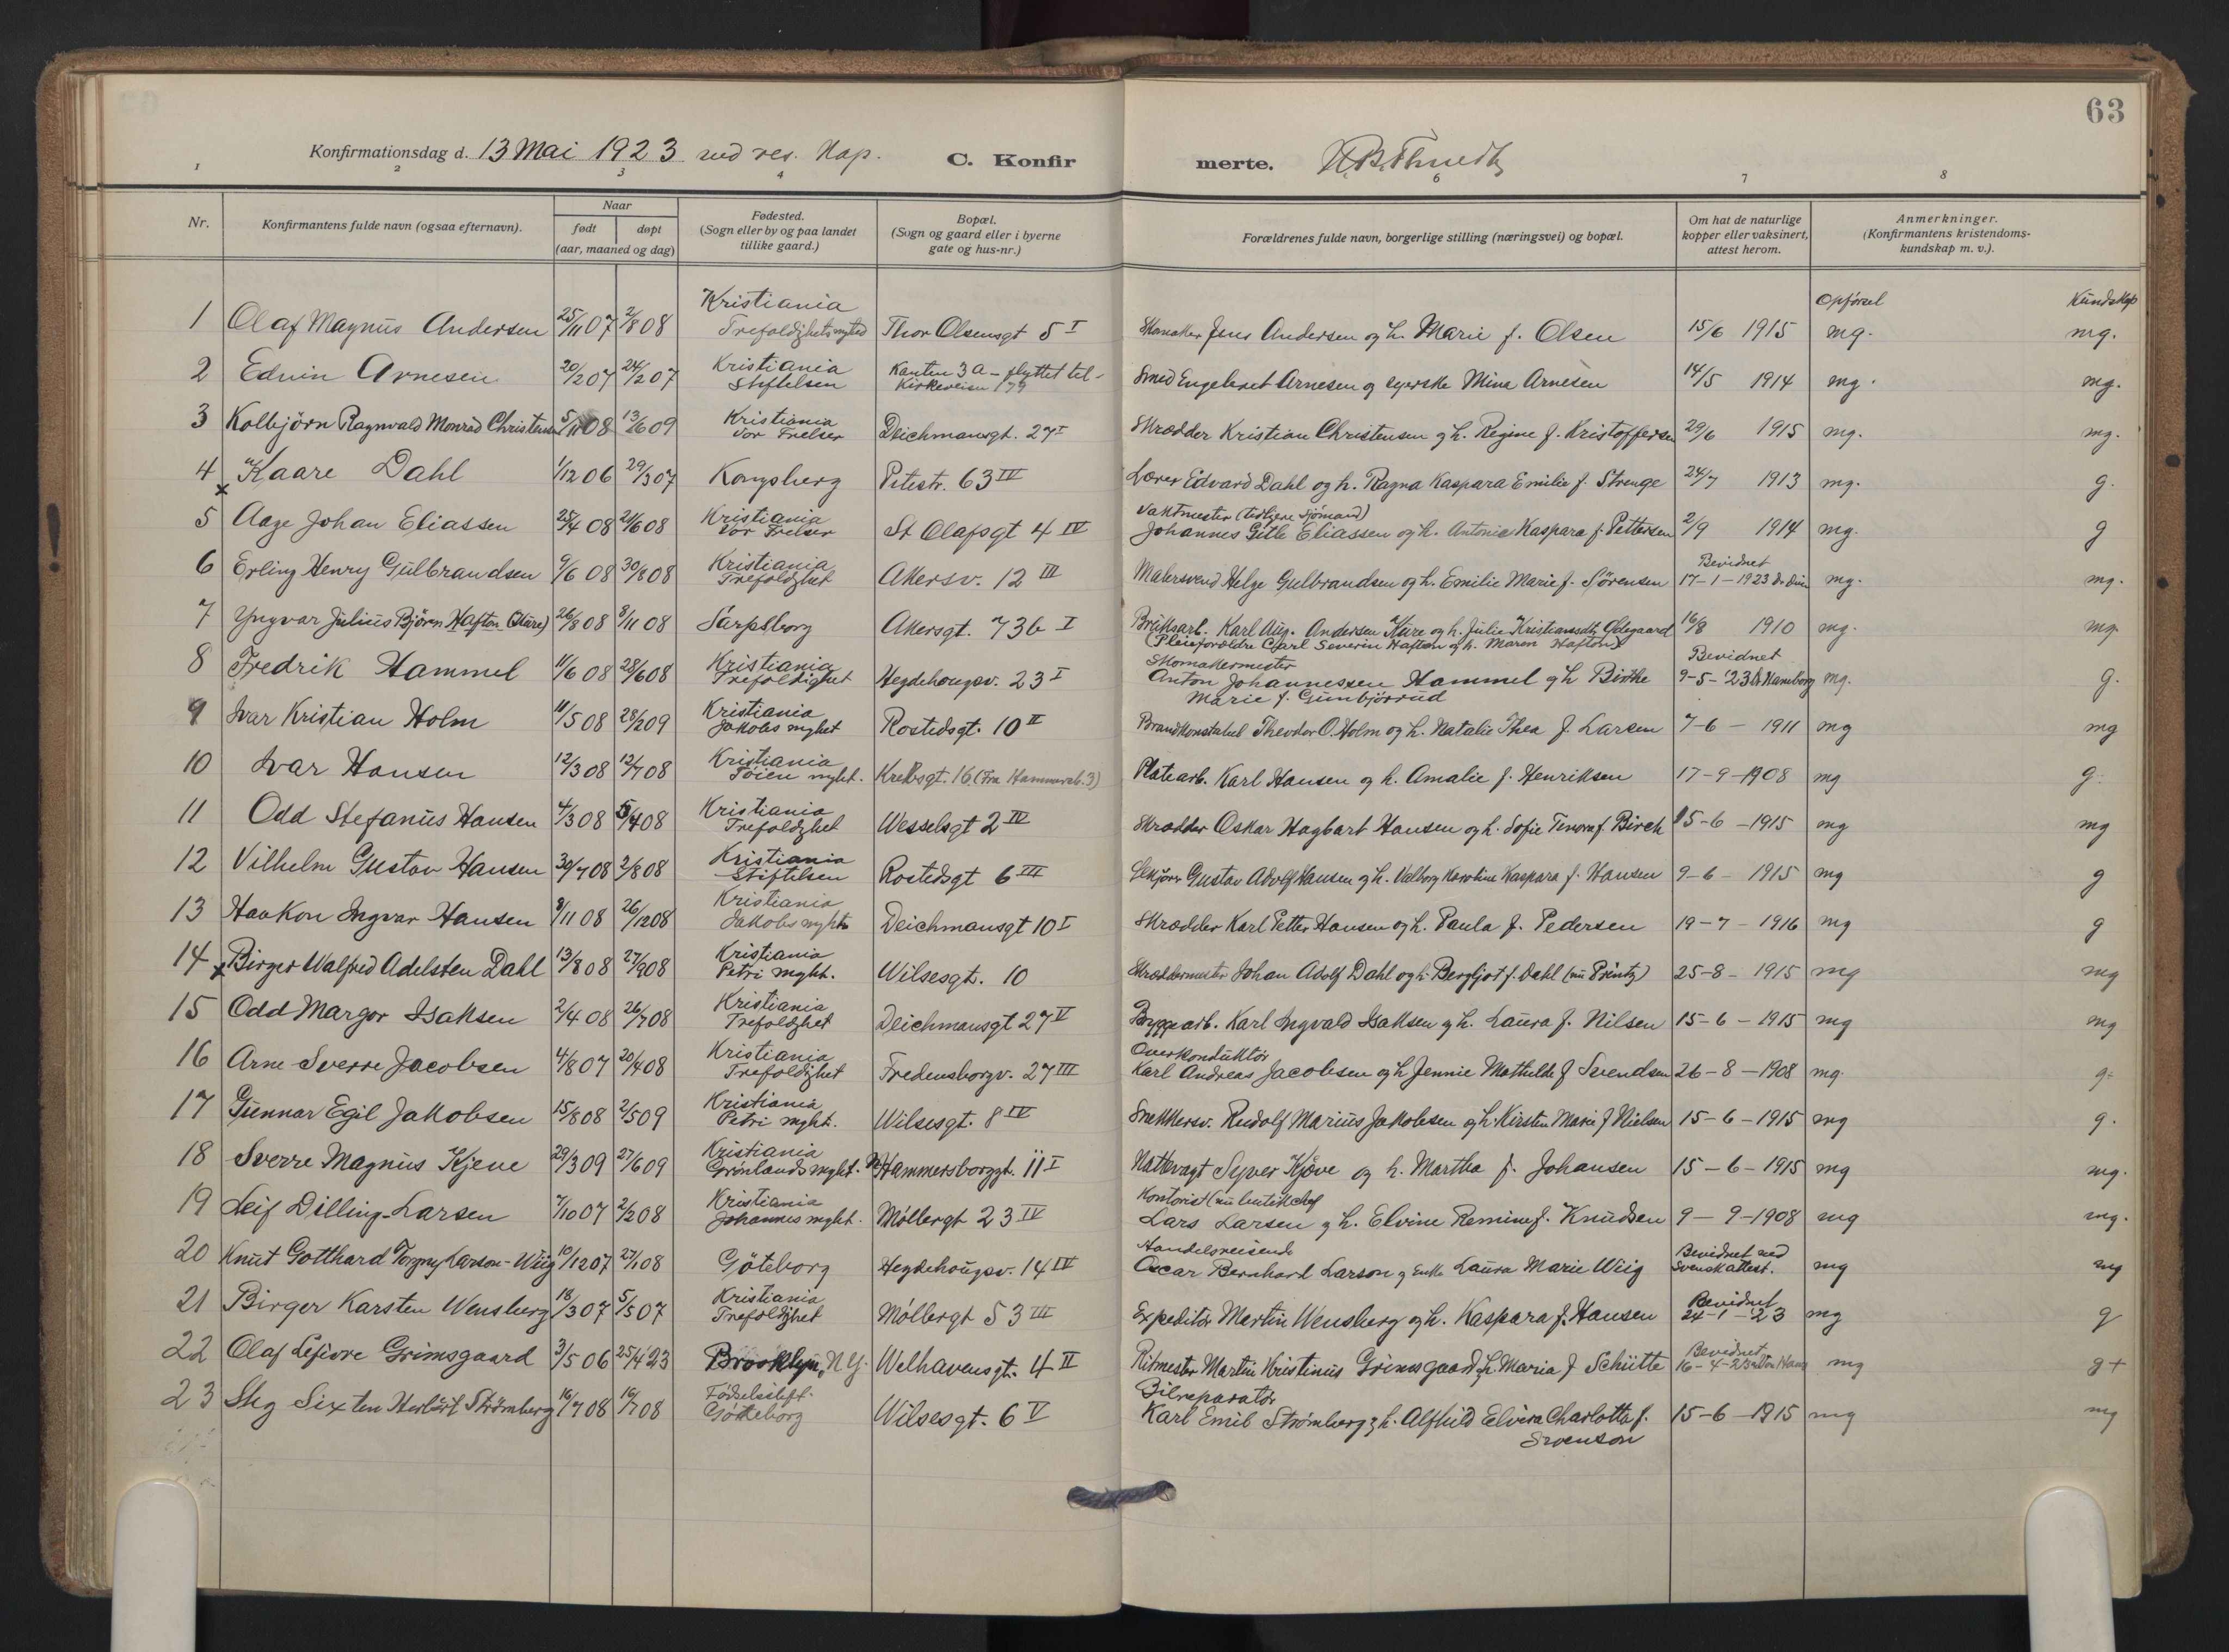 63
Konfirmationsdag d. 13 Mai 1923 ved res. Kap. C. Konfirmerte.
1 2 3 4 6 7 8
Nr. Konfirmantens fulde navn (ogsaa efternavn). Naar født døpt (aar, maaned og dag) Fødested. (Sogn eller by og paa landet tillike gaard.) Bopæl. (Sogn og gaard eller i byerne gate og hus-nr.) Forældrenes fulde navn, borgerlige stilling (næringsvei) og bopæl. Om hat de naturlige kopper eller vaksinert, attest herom. Anmerkninger. (Konfirmantens kristendoms-kundskap m. v.).
Opførsel Kundskap
1 Olaf Magnus Andersen 25/11 07 2/8 08 Kristiania Trefoldighets Thor Olsensgt 5 I Skomaker Jens Andersen og h. Marie f. Olsen 15/6 1915 mg. mg.
2 Edvin Arnesen 20/2 07 24/2 07 Kristiania Stiftelsen Kanten 3a - flyttet til Kirkeveien Smed Engebret Arnesen og Mina Arnesen 14/5 1914 mg. mg.
3 Kolbjörn Ragnvald Monrad Christensen 5/11 08 13/6 09 Kristiania Vor Frelser Deichmansgt. 27 I Skrædder Kristian Christensen og h. Regine f. Kristoffersen 29/6 1915 mg. mg.
4 x Kaare Dahl 1/12 06 29/3 07 Kongsberg Pilestr. 63 IV Lærer Edvard Dahl og h. Ragna Kaspara Emilie f. Strenge 24/7 1913 mg. g.
5 Aage Johan Eliassen 25/4 08 21/6 08 Kristiania Vor Frelser St Olafsgt 4 IV Vaktmester (tidligere Sjömand)
Johannes Gitle Eliassen og h. Antonie Kaspara f. Pettersen 2/9 1914 mg. g
6 Erling Henry Gulbrandsen 9/6 08 30/8 08 Kristiania Trefoldighet Akersv. 12 III Malersvend Helge Gulbrandsen og h. Emilie Marie f. Sørensen Bevidnet 17-1-1923 mg. mg.
7 Yngvar Julius Björen Hafton (Kure) 26/8 08 8/11 08 Sarpsborg Akersgt. 73b I Bruksarb. Karl Aug. Andersen Kure og h. Julie Kristiansdtr Ødegaard 16/8 1910 mg. mg.
(Pleieforældre Carl Severin Hafton og h. Maren Hafton)
8 Fredrik Hammel 11/6 08 28/6 08 Kristiania Trefoldighet Hegdehaugsv. 23 I Skomakermester
Anton Johannessen Hammel og h Birthe Bevidnet 9-5-'23 mg. g.
Marie f. Gunbjörrud
9 Ivar Kristian Holm 11/5 08 28/2 09 Kristiania Jakobs mght Rostedsgt. 10 II Brandkonstabel Theodor O. Holm og h. Natalie Thea f. Larsen 7-6-1911 mg mg
10 Ivar Hansen 12/3 08 12/7 08 Kristiania Töien mght. Krebsgt. 16 Platearb. Karl Hansen og h. Amalie f. Henriksen 17-9-1908 mg g.
11 Odd Stefanus Hansen 4/3 08 5/4 08 Kristiania Trefoldighet Wesselsgt 2 IV Skrædder Oskar Hagbart Hansen og h. Sofie f. Birch 15-6-1915 mg mg
12 Vilhelm Gustav Hansen 30/7 08 2/8 08 Kristiania Stiftelsen Rostedsgt 6 III Gustav Adolf Hansen og h. Valborg Karoline Kaspara f. Hansen 9-6-1915 mg g
13 Haakon Ingvar Hansen 8/11 08 26/12 08 Kristiania Jakobs mght Deichmansgt 10 I Skrædder Karl Petter Hansen og h. Paula f. Pedersen 19-7-1916 mg g
14 x Birger Walfred Adelsten Dahl 13/8 08 27/9 08 Kristiania Petri mght. Wilsesgt. 10 Skræddermester Johan Adolf Dahl og h. Bergljot f. Dahl (nu Printz) 25-8-1915 mg mg
15 Odd Margor Isaksen 2/4 08 26/7 08 Kristiania Trefoldighet Deichmansgt 27 V Byggearb. Karl Ingvald Isaksen og h. Laura f. Nilsen 15-6-1915 mg mg
16 Arne Sverre Jacobsen 4/8 07 20/4 08 Kristiania Trefoldighet Fredensborgv. 27 III Overkonduktör
Karl Andreas Jacobsen og h Jennie Mathilde f Svendsen 26-8-1908 mg. g
17 Gunnar Egil Jakobsen 15/8 08 2/5 09 Kristiania Petri mght. Wilsesgt. 8 IV Snekkersv. Rudolf Marius Jakobsen og h. Kirsten Marie f Nielsen 15-6-1915 mg g.
18 Sverre Magnus Kjeve 29/3 09 27/6 09 Kristiania Grönlands mght. Hammersborggt. 11 I Nattvagt Syver Kjöve og h. Martha f. Johansen 15-6-1915 mg mg.
19 Leif Dilling-Larsen 7/10 07 2/2 08 Kristiania Johannes mght. Möllergt 23 IV Kontorist (nu butikchef
Lars Larsen og h. Elvine Remine f. Knudsen 9-9-1908 mg mg.
20 Knut Gotthard Torgny Larson-Wiig 10/12 07 27/1 08 Göteborg Hegdehaugsv. 14 IV Handelsreisende
Oscar Bernhard Larson og Enke Laura Marie Wiig Bevidnet ved svensk attest. mg mg
21 Birger Karsten Wensberg 18/3 07 5/5 07 Kristiania Trefoldighet Möllergt 53 III Expeditör Martin Wensberg og h. Kaspara f. Hansen Bevidnet 24-1-'23 mg g
22 Olaf Lefevre Grimsgaard 3/5 06 25/4 23 Brooklyn, N.Y. Welhavensgt. 4 II Ritmester Martin Kristinus Grimsgaard og h. Maria f Schütte Bevidnet 16-4-23 mg g+
23 Stig Sixten Herbert Strömberg 16/7 08 16/7 08 Fødselsstift. Göteborg Wilsesgt. 6 V Bilreparatör
Karl Emil Strömberg og h. Alfhild Elvira Charlotta f. 15-6-1915 mg mg
Svenson